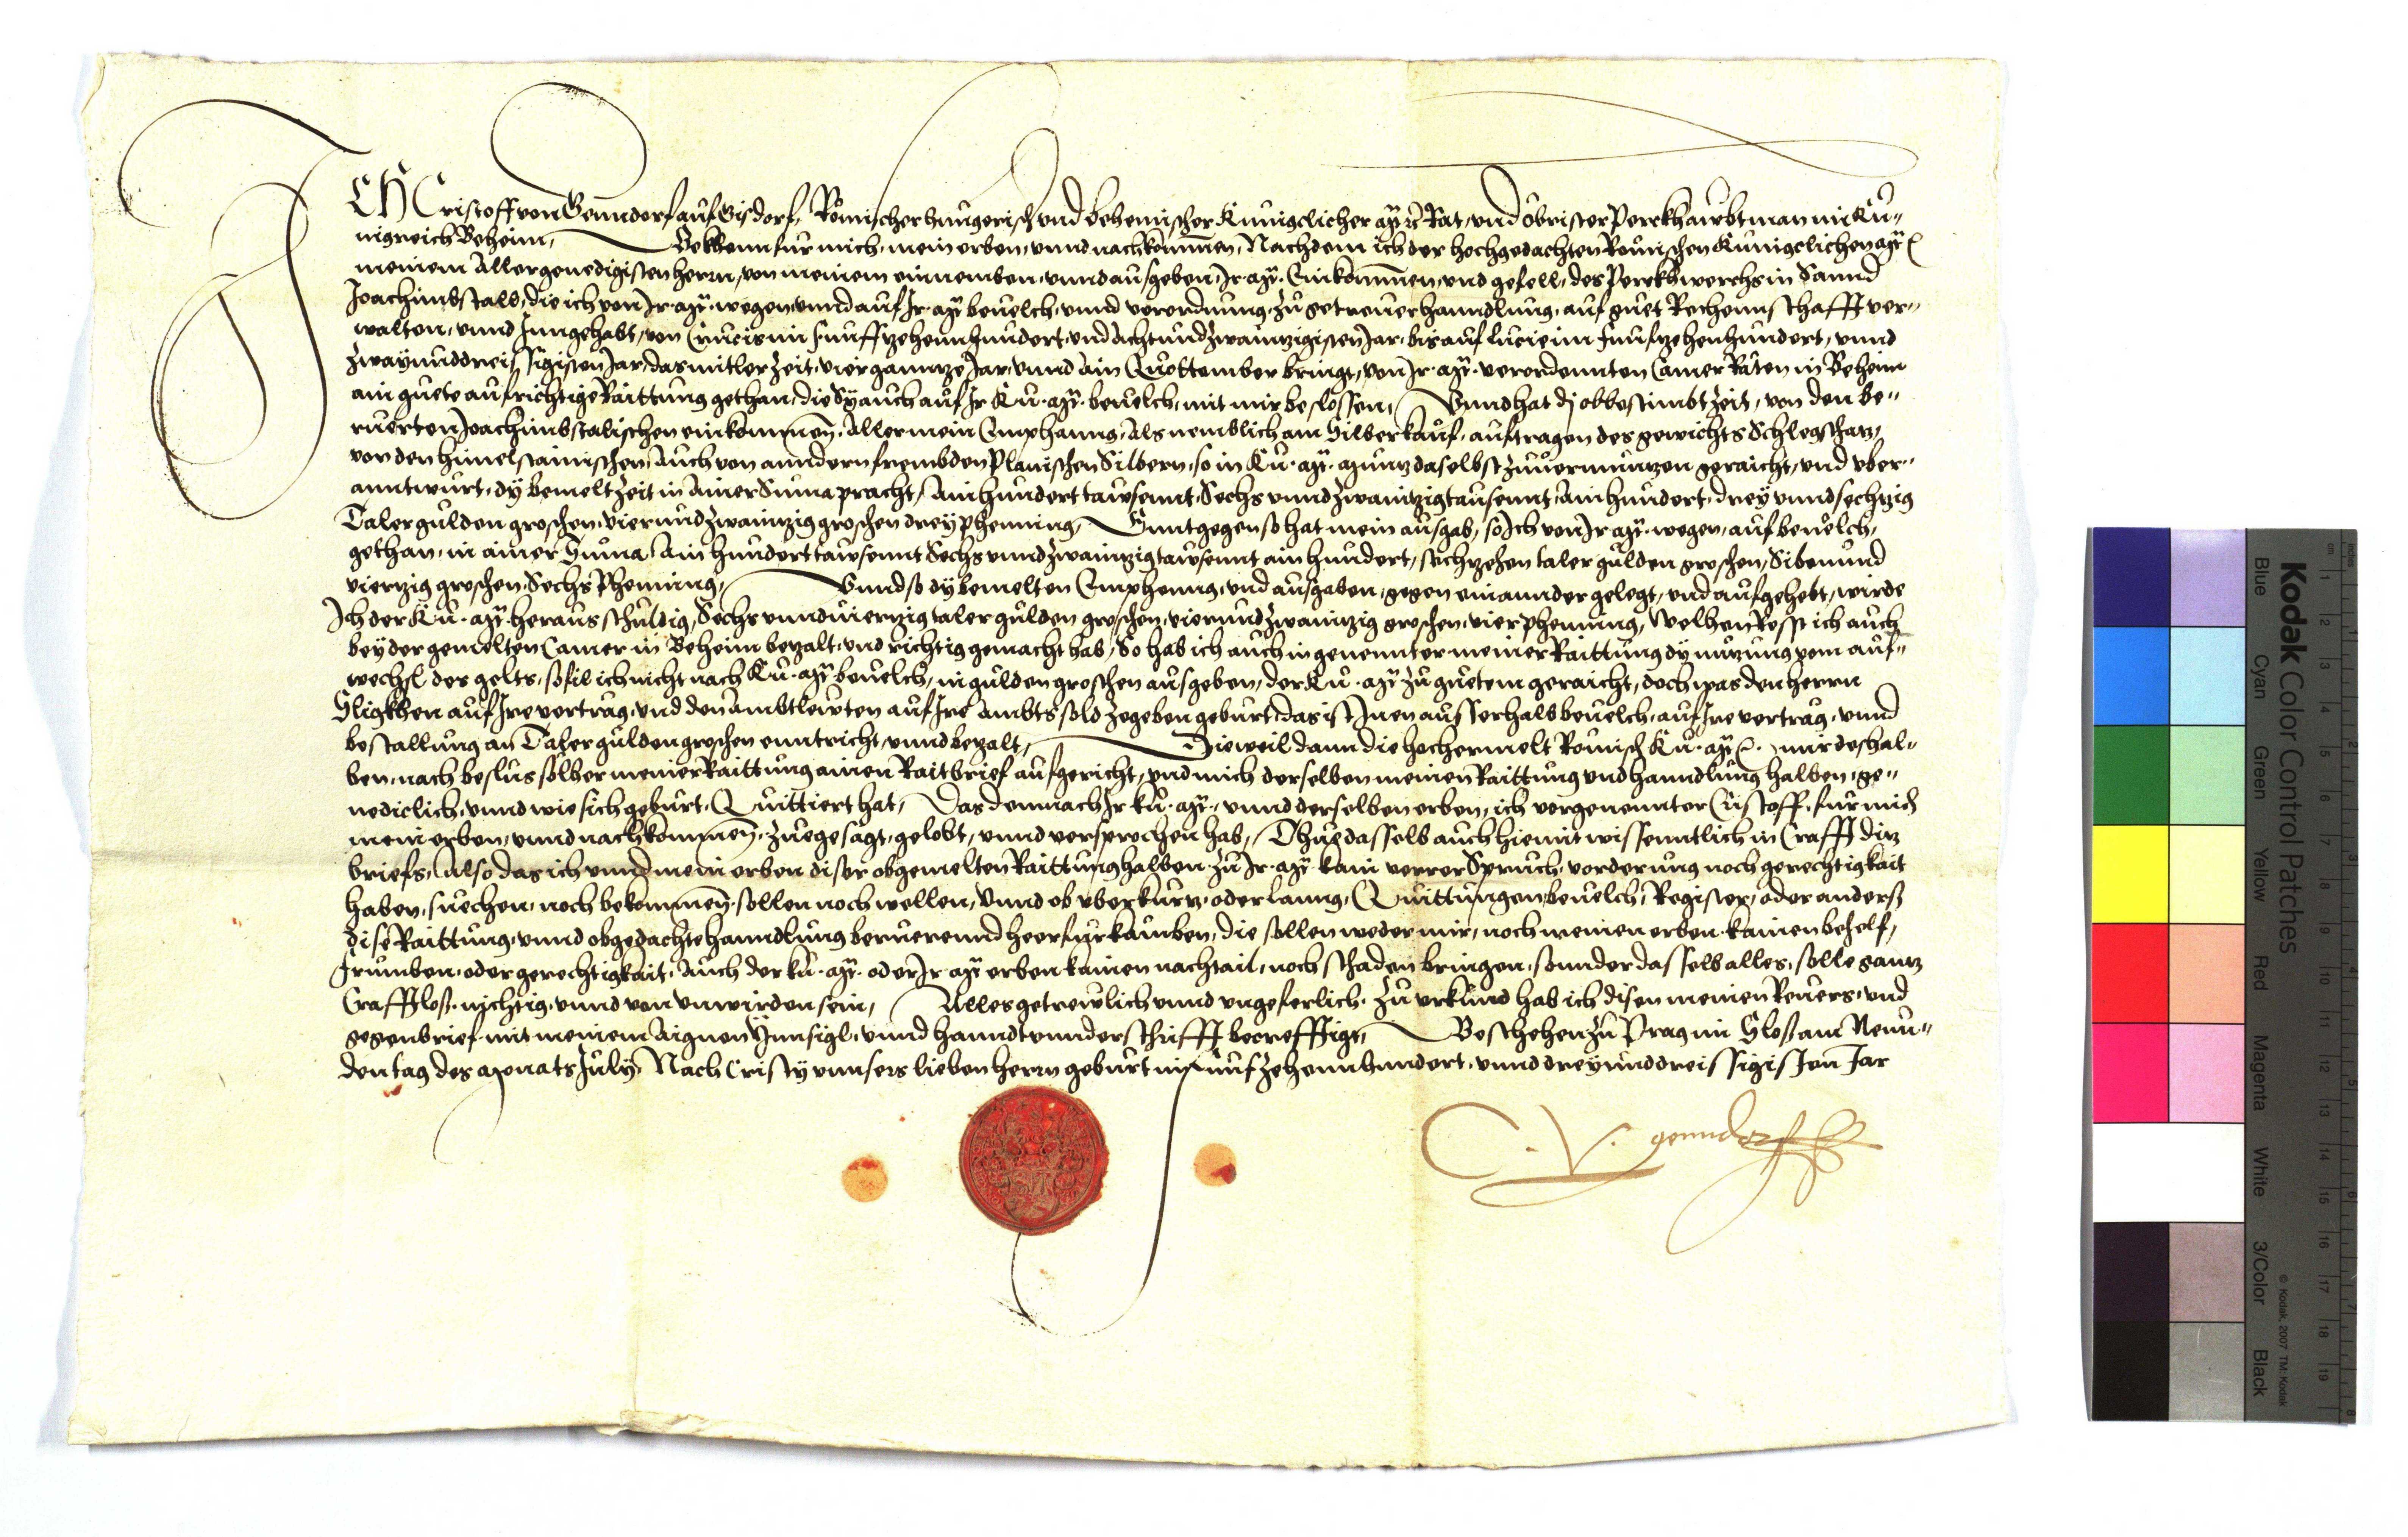 ICH Cristoff von Genndorf auf Gisdorf, Römischer hungerisch vnd behemischer Kunigclicher Mt. Rat, vnd öbrister Perckhaubtman im Ku-
nigreich Beheim, Bekhenn für mich, mein erben, vnnd nachkommen, Nachdem ich der hochgedachten Römischen Kunigclichen Mt.
meinem Allergenedigisten herrn, von meinem einnemben, vnnd ausgeben, Ir. Mt. Einkommen, vnd gefell, des Perckhwerchs in Sannd
Joachimbstals, die ich von Ir. Mt. wegen, vnnd auf Ir. Mt. beuelch, vnnd verordnung, zu getreuer hanndlung, auf guet Rechennschafft ver-
walten, vnnd Inngehabt, von Crucis im funffzehennhundert, vnd achtundzwainzigisten Jar, bis auf lucie im funfzehenhundert, vnnd
zwayunddreissigisten Jar, das mitler zeit, vier ganntze Jar, vnnd ain Quottember bringt, von Ir. Mt. verordennten Camer Räten in Beheim
ain guete aufrichtige Raittung gethan, die Sy auch auf Ir Ku. Mt. beuelch, mit mir beslossen, Vnnd hat dj obbestimbt zeit, von den be-
ruerten Joachimbstalischen einkommen, Aller mein Emphanng, Als nemblich am Silberkauf, auftragen des gewichts Schlegschatz,
von den hünelstainischen, Auch von anndern frembden Planischen Silbern, so in Ku. Mt. Muntz daselbst zuuermuntzen geraicht, vnd vber-
anntwurt, dy bemelt zeit in Ainer Suma pracht, Ainhundert tausennt, Sechs vnnd zwaintzigtausennt, Ainhundert, drey vnnd sechtzig
Taler gulden groschen, vierundzwainzig groschen drey phenning, Enntgegen so hat mein ausgab, so Ich von Ir. Mt. wegen, auf beuelch,
gethan, in ainer Suma, Ain hundert tausennt Sechs vnnd zwainzigtausennt ain hundert, sechzehen taler gulden groschen, Siben und
vierzig groschen, Sechs Phenning, Vnnd so dy bemelten Emphenng, vnd ausgaben, gegen einannder gelegt, vnd aufgehebt, wirde
Ich der Ku. Mt. heraus schuldig, Sechs vnnd vierzig taler gulden groschen, vierundzwainzig groschen, vier phenning, Welhen Resst ich auch
bey der gemelten Camer in Beheim bezalt, vnd richtig gemacht hab, So hab ich auch in genennter meiner Raittung dy nutzung vom auf-
wechsl des gelts, so fil ich nicht nach Ku. Mt. beuelch, in gulden groschen ausgeben, der Ku. Mt. zu guetem geraicht, doch was den herrn
Sligkhen auf Ire vertrag, vnd den Ambtlewten auf Ire Ambtssold zegeben geburt, das ist Inen ausserhalb beuelch, auf Ire vertrag, vnnd
bestallung an Taler gulden groschen enntricht, vnnd bezalt, Dieweil dann die hochermelt Römisch Ku. Mt. mir deshal-
ben, nach beslus solher meiner Raittung ainen Raitbrief aufgericht, vnd mich derselben meinen Raittung vnd hanndlung halben, ge-
nediclich, vnnd wie sich geburt, Quittiert hat, Das demnach Ir Ku. Mt. vnnd derselben erben, ich vorgenennter Cristoff, für mich
mein erben, vnnd nachkommen, zuegesagt, gelobt, vnnd versprochen hab, Thue dasselb auch hiemit wissenntlich in Crafft ditz
briefs, Also das ich vnnd mein erben diser obgemelten Raittung halben zu Ir. Mt. kain verrer Spruch, vorderung noch gerechtigkait
haben, suechen, noch bekommen, sollen noch wellen, Vnnd ob vber kurtz, oder lanng, Quittungen, beuelch, Register, oder anders,
dise Raittung, vnnd obgedachte hanndlung beruerennd heerfurkämben, die sollen weder mir, noch meinen erben, kainen behelf,
frumben, oder gerechtigkait, Auch der Ku. Mt. oder Ir Mt. erben kainen nachtail, noch schaden bringen, sonnder dasselb alles, solle gantz
Crafftlos, nichtig, vnnd von vnwirden sein, Alles getrewlich vnnd vngeferlich. Zu vrkund hab ich disen meinen Reuers, vnd
gegenbrief mit meinem Aignen Innsigl, vnnd hanndtunnderschrifft becrefftigt, Beschehen zu Prag im Sloß am Neun-
den tag des Monats July, Nach Cristy vnnsers lieben herrn geburt im funfzehennhundert, vnnd dreyunddreissigisten Jar
C. V. genndorff
Kodak Color Control Patches
Blue Cyan Green Yellow Red Magenta White 3/Color Black
© Kodak, 2007 TM: Kodak